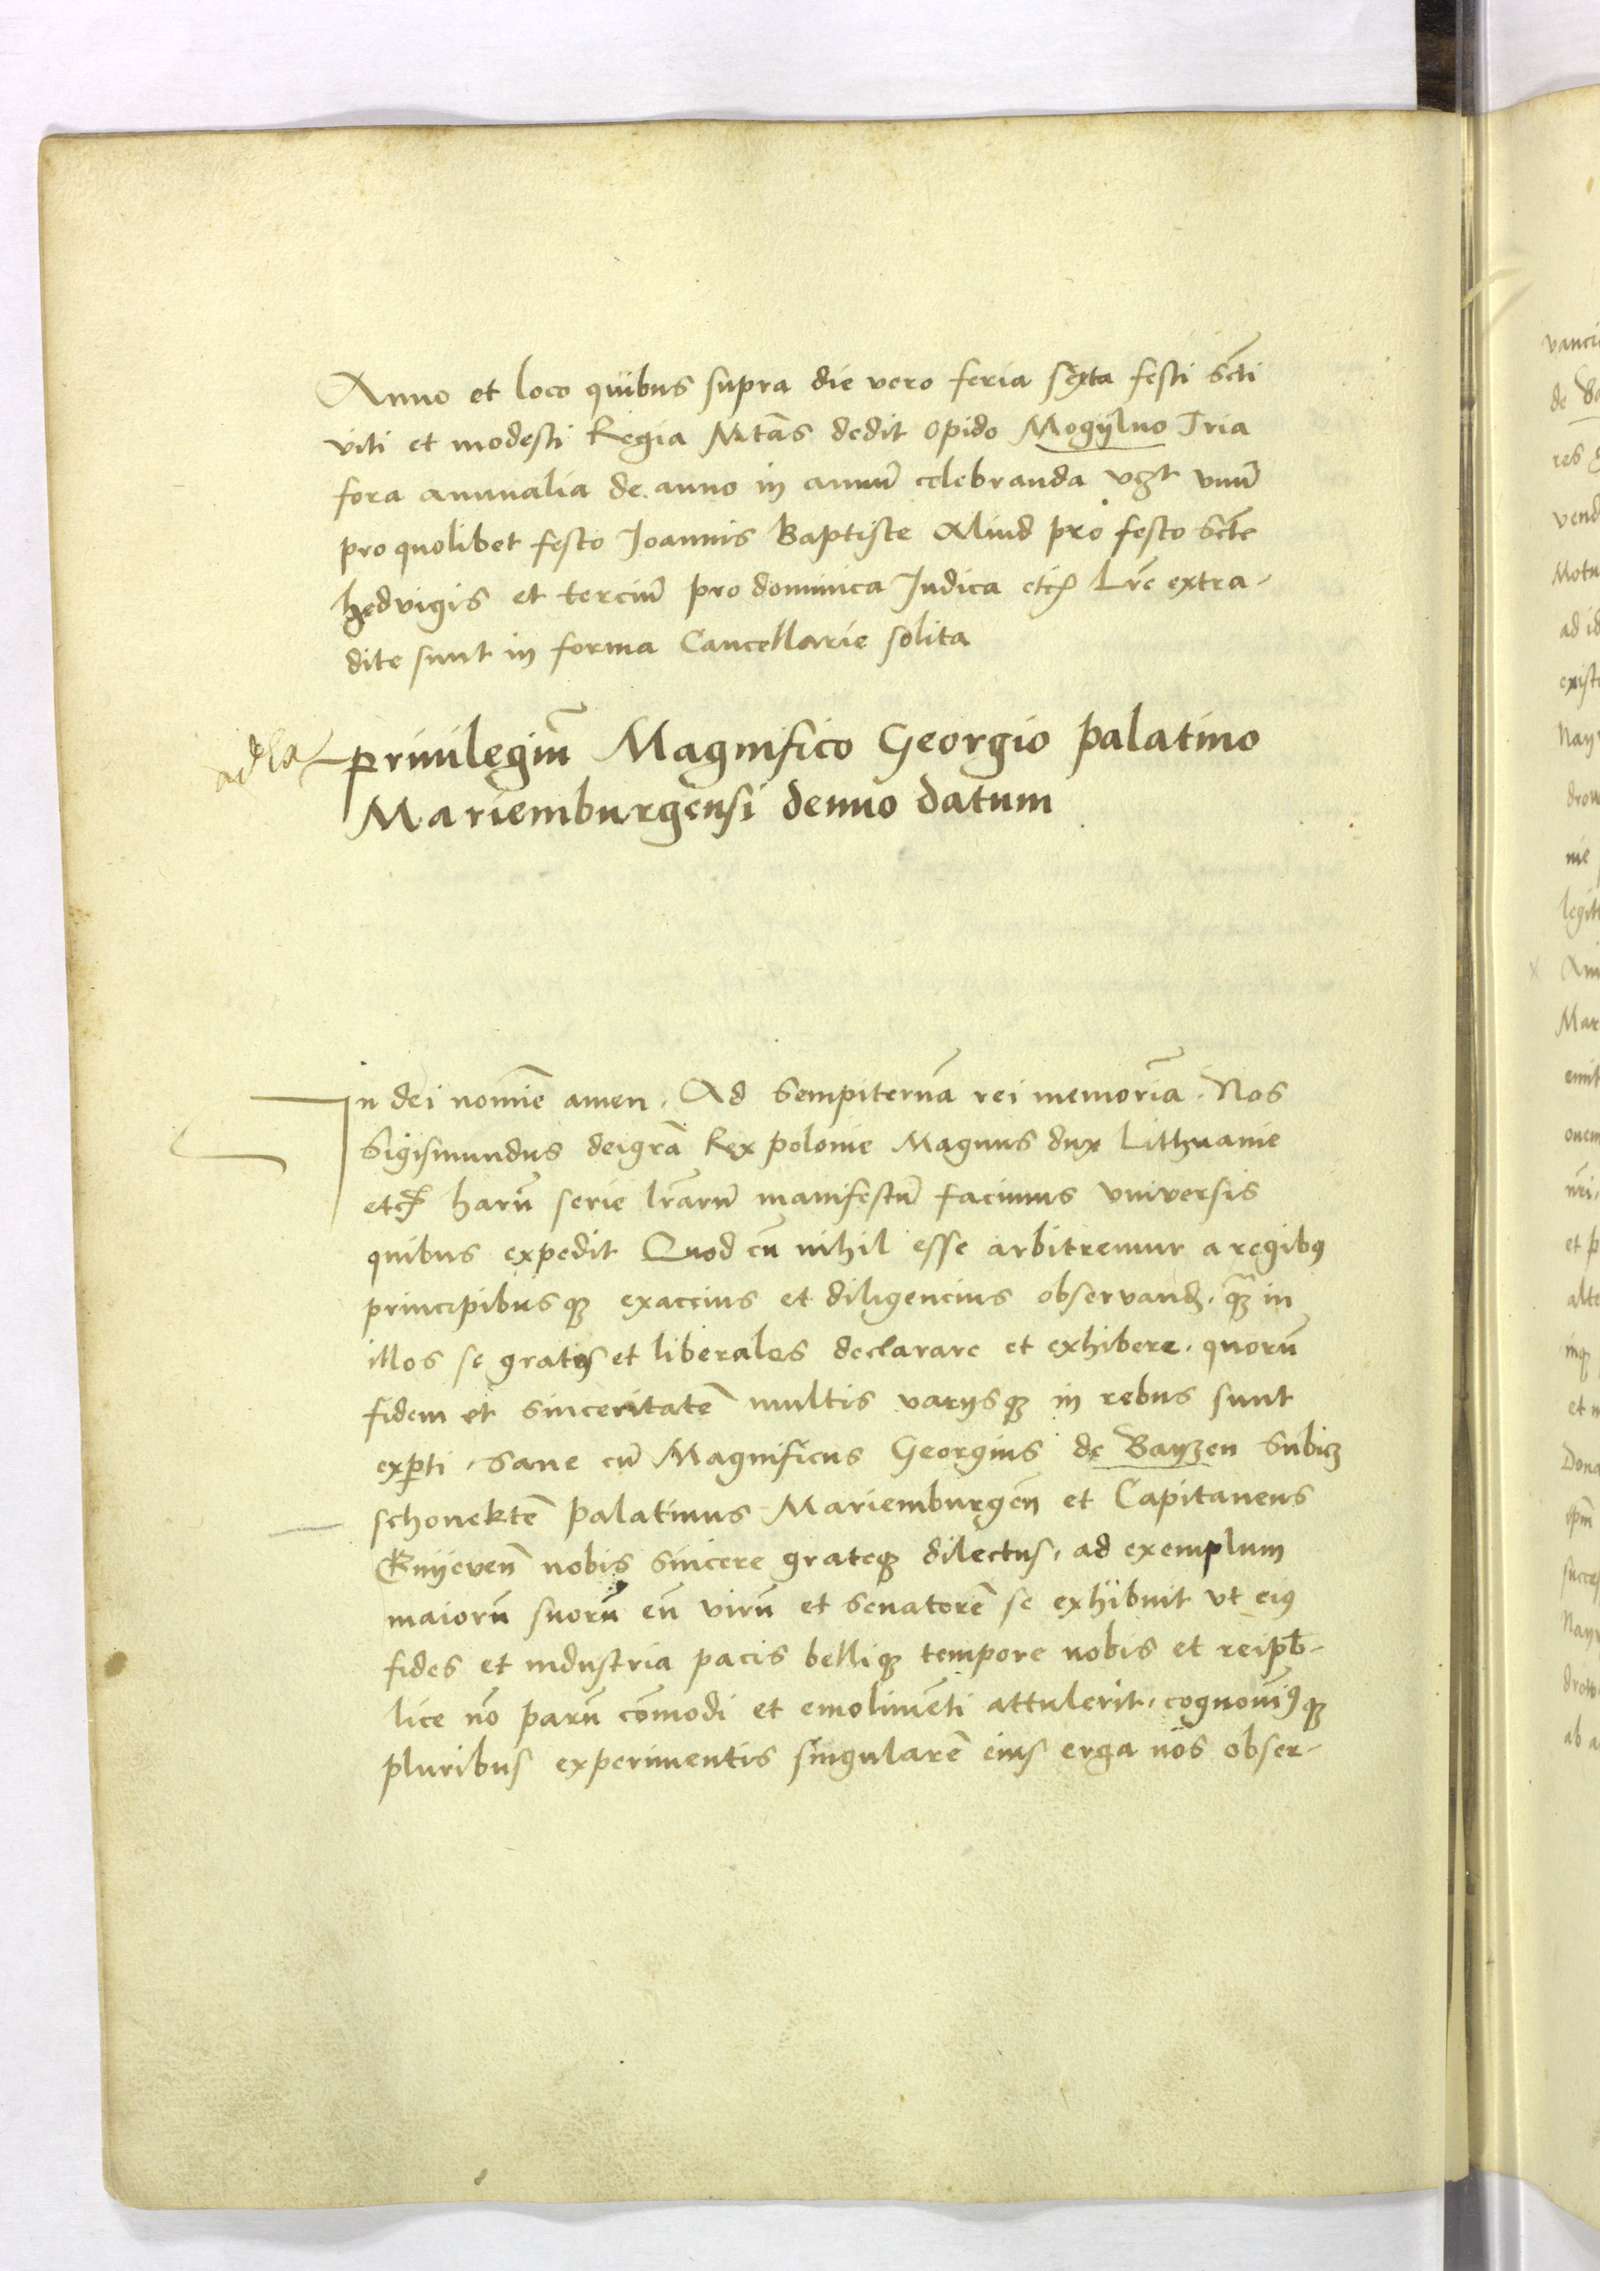 Anno et loco quibus supra die vero feria sexta festi scti
viti et modesti Regia Mtas dedit opido Mogijlno Tria
fora annualia de anno in annu͂ celebranda vꝫt vnu͂
pro quolibet festo Joannis Baptiste Aliud pro festo scte
hedvigis et terciu͂ pro dominica Judica etc̃ Lr̃e extra-
dite sunt in forma Cancellarie solita
priuilegiu͂ Magnifico Georgio palatino
Mariemburgensi denuo datum
In dei nomi͂e amen. Ad sempiterna͂ rei memoria͂. Nos
Sigismundus dei gra͂ Rex polonie Magnus dux Lithuanie
etc̃ haru͂ serie lr̃aru͂ manifestu͂ facimus vniversis
quibus expedit Quod cu͂ nihil esse arbitremur a regibꝰ
principibusqꝫ exaccius et diligencius observand. qꝫ in
illos se gratos et liberales declarare et exhibere. quoru͂
fidem et sinceritate͂ multis varijsqꝫ in rebus sunt
exp̱ti. Sane cu͂ Magnificus Georgius de Bayzen
schonekte͂ palatinus Mariemburgen͂ et Capitaneus
nobis sincere grateqꝫ dilectus, ad exemplum
maioru͂ suoru͂ eu͂ viru͂ et senatore͂ se exhibuit vt eiꝰ
fides et industria pacis belliqꝫ tempore nobis et reipb-
lice no͂ paru͂ co͂modi et emolime͂ti attulerit, cognouimꝰqꝫ
pluribus experimentis singulare͂ eius erga nos obser-